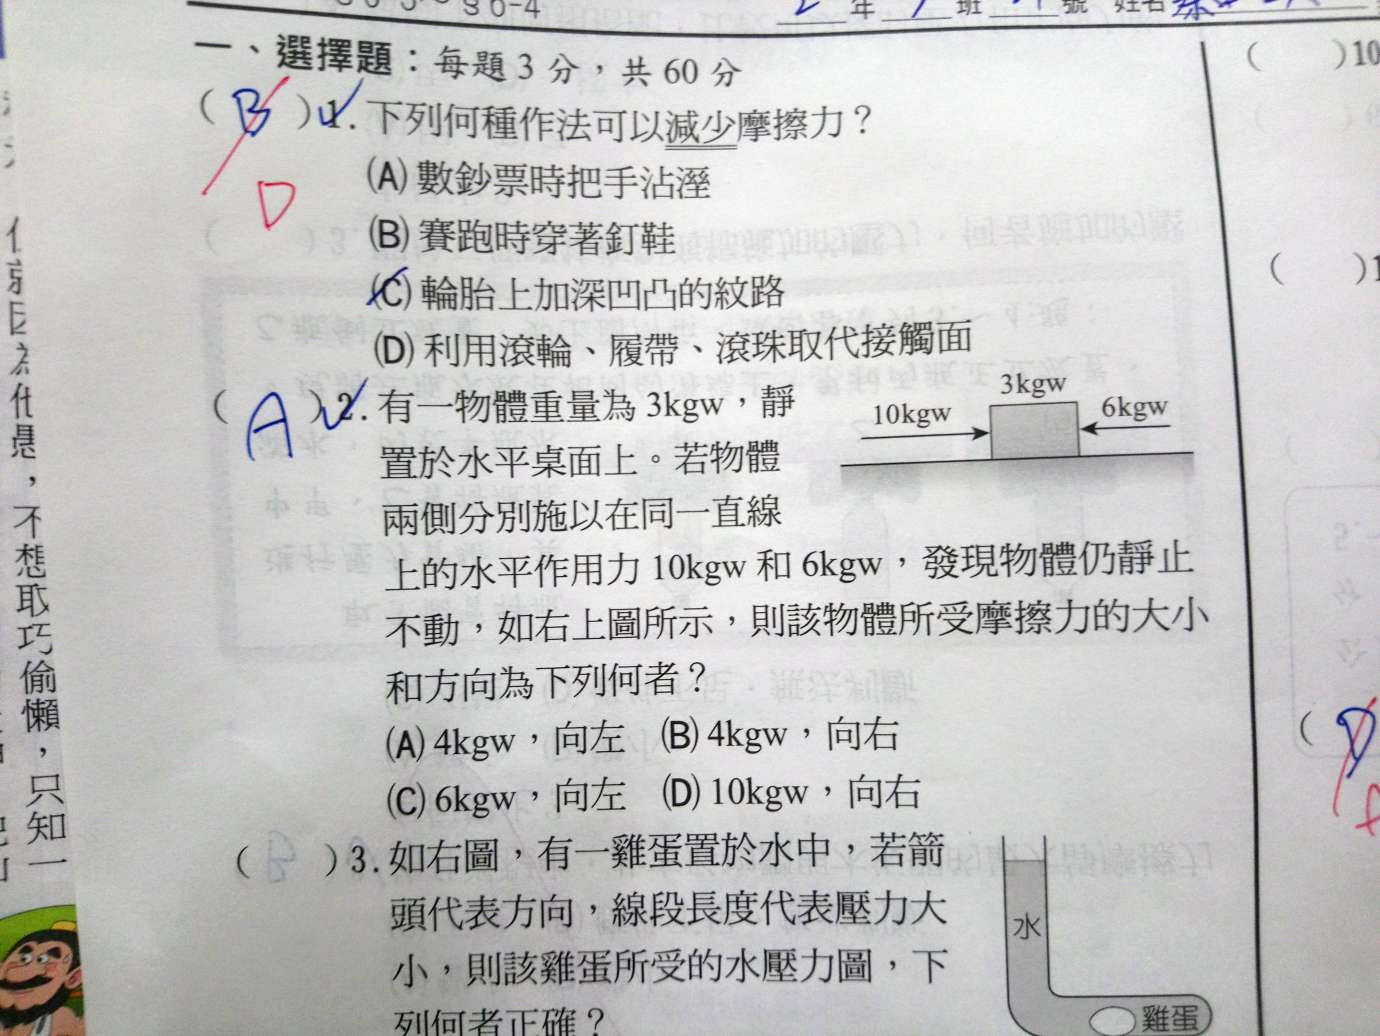 年 班 號 姓名
一、選擇題：每題 3 分，共 60 分
( B ) 1. 下列何種作法可以減少摩擦力？
D
(A) 數鈔票時把手沾溼
(B) 賽跑時穿著釘鞋
(C) 輪胎上加深凹凸的紋路
(D) 利用滾輪、履帶、滾珠取代接觸面
( A ) 2. 有一物體重量為 3kgw，靜
置於水平桌面上。若物體
兩側分別施以在同一直線
上的水平作用力 10kgw 和 6kgw，發現物體仍靜止
不動，如右上圖所示，則該物體所受摩擦力的大小
和方向為下列何者？
3kgw
10kgw
6kgw
(A) 4kgw，向左 (B) 4kgw，向右
(C) 6kgw，向左 (D) 10kgw，向右
( ) 3. 如右圖，有一雞蛋置於水中，若箭
頭代表方向，線段長度代表壓力大
小，則該雞蛋所受的水壓力圖，下
列何者正確？
水
雞蛋
( ) 10
( ) 1
( D
，不想取巧偷懶，只知一